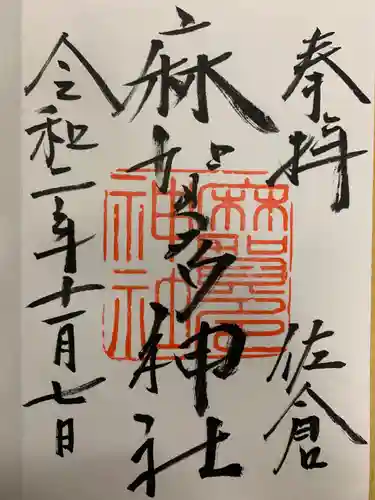 奉拝 佐倉
麻賀多神社
令和二年十一月七日
麻賀多
神社